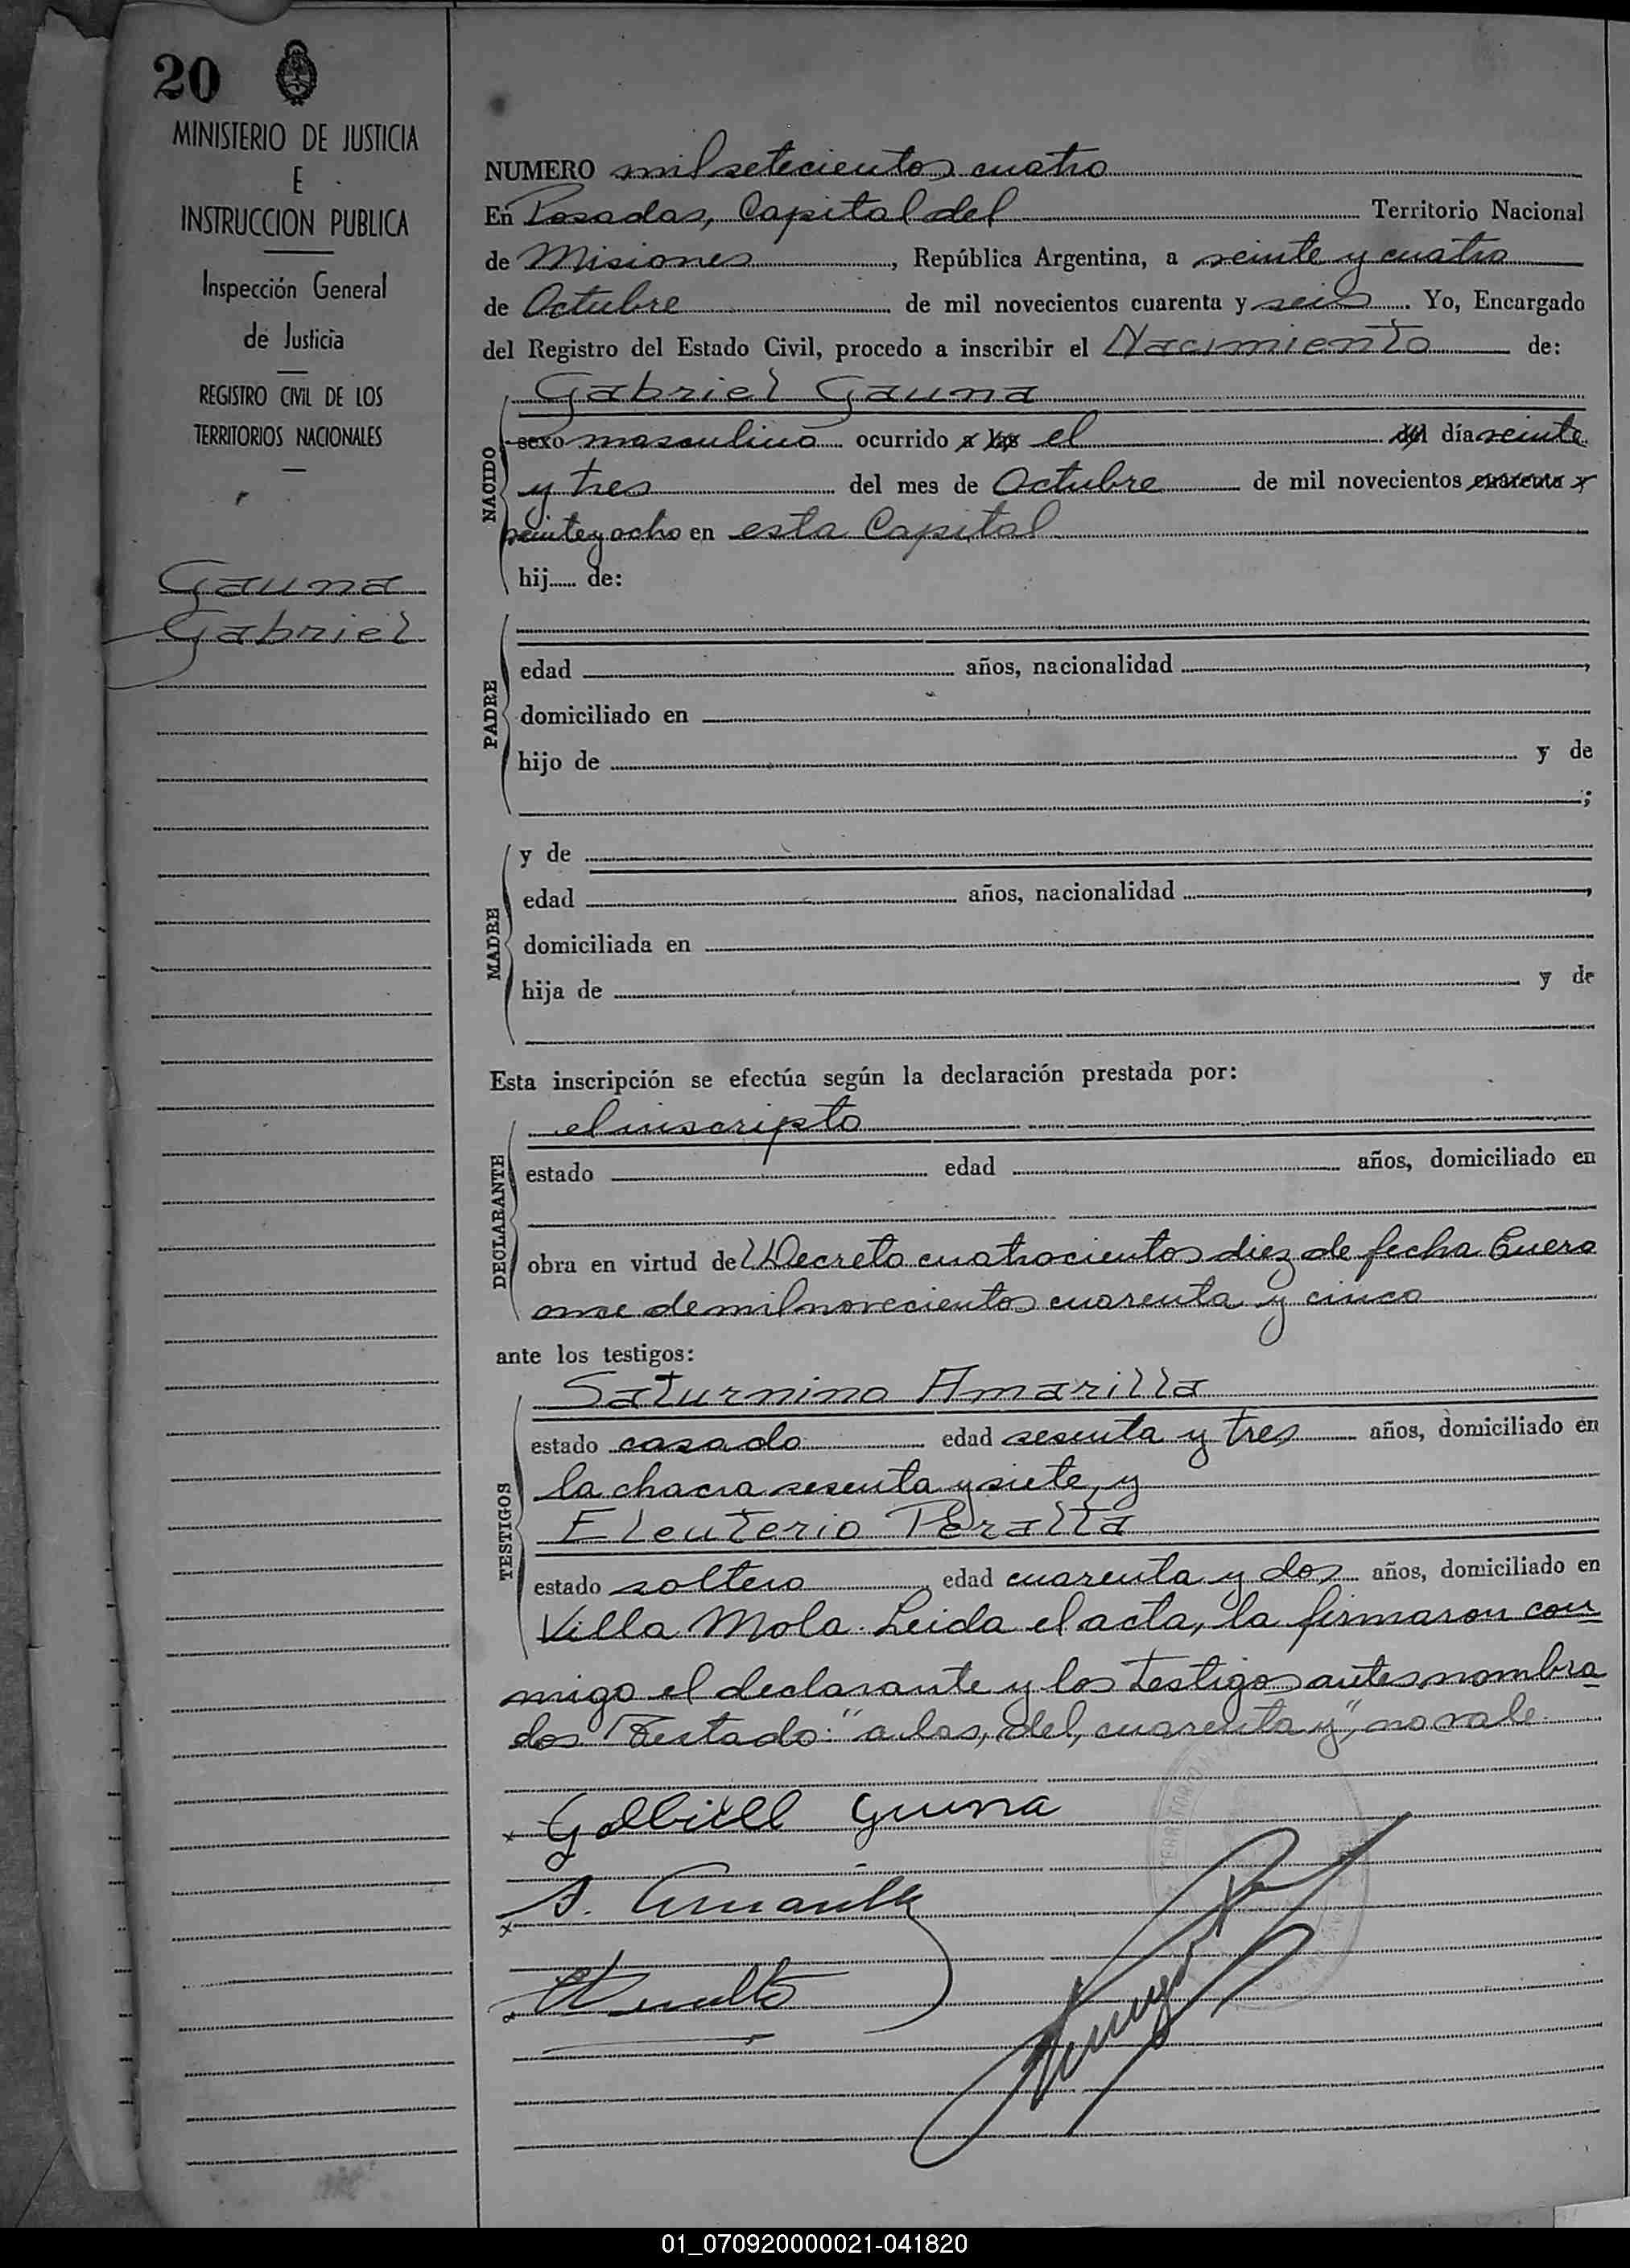 20
MINISTERIO DE JUSTICIA
E
INSTRUCCION PUBLICA
Inspección General
de Justicia
REGISTRO CIVIL DE LOS
TERRITORIOS NACIONALES
Gauna
Gabriel
NUMERO mil setecientos cuatro
En Posadas, Capital del Territorio Nacional
de Misiones, República Argentina, a veinte y cuatro
de Octubre de mil novecientos cuarenta y seis. Yo, Encargado
del Registro del Estado Civil, procedo a inscribir el Nacimiento de:
NACIDO
Gabriel Gauna
sexo masculino ocurrido a las el del día veinte
y tres del mes de Octubre de mil novecientos cuarenta y
veinte y ocho en esta Capital
hij de:
PADRE
edad años, nacionalidad ,
domiciliado en
hijo de y de
;
MADRE
y de
edad años, nacionalidad ,
domiciliada en
hija de y de
Esta inscripción se efectúa según la declaración prestada por:
DECLARANTE
el inscripto
estado edad años, domiciliado en
obra en virtud del Decreto cuatrocientos diez de fecha Enero
once de mil novecientos cuarenta y cinco
ante los testigos:
TESTIGOS
Saturnino Amarilla
estado casado edad sesenta y tres años, domiciliado en
la chacra sesenta y siete, y
Eleuterio Peralta
estado soltero edad cuarenta y dos años, domiciliado en
Villa Mola. Leida el acta, la firmaron con
migo el declarante y los testigos antes nombra
dos Testado: "a las, del, cuarenta y", no vale
Gabriel Gauna
S. Amarilla
01_070920000021-041820